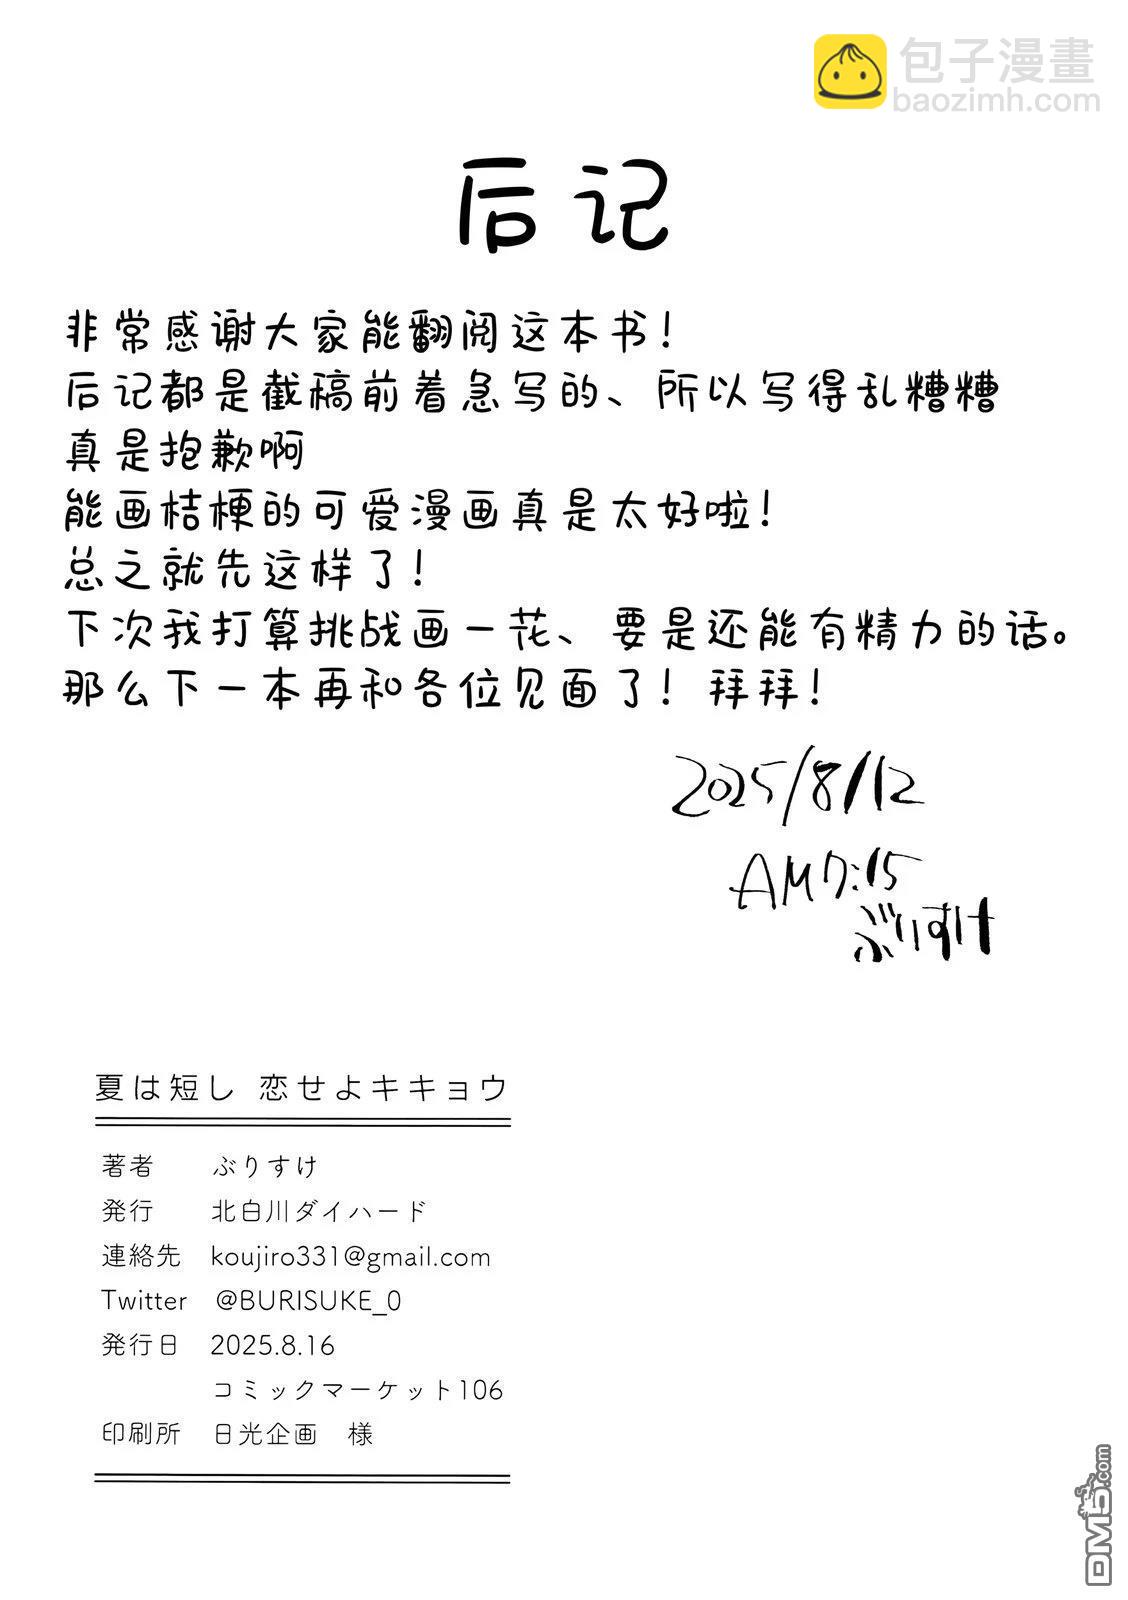 包子漫畫
baozimh.com
后记
非常感谢大家能翻阅这本书！
后记都是截稿前着急写的、所以写得乱糟糟
真是抱歉啊
能画桔梗的可爱漫画真是太好啦！
总之就先这样了！
下次我打算挑战画一花、要是还能有精力的话。
那么下一本再和各位见面了！拜拜！
2025/8/12
AM7:15
ぶりすけ
夏は短し 恋せよキキョウ
著者 ぶりすけ
発行 北白川ダイハード
連絡先 koujiro331@gmail.com
Twitter @BURISUKE_0
発行日 2025.8.16
コミックマーケット106
印刷所 日光企画 様
DM5.com